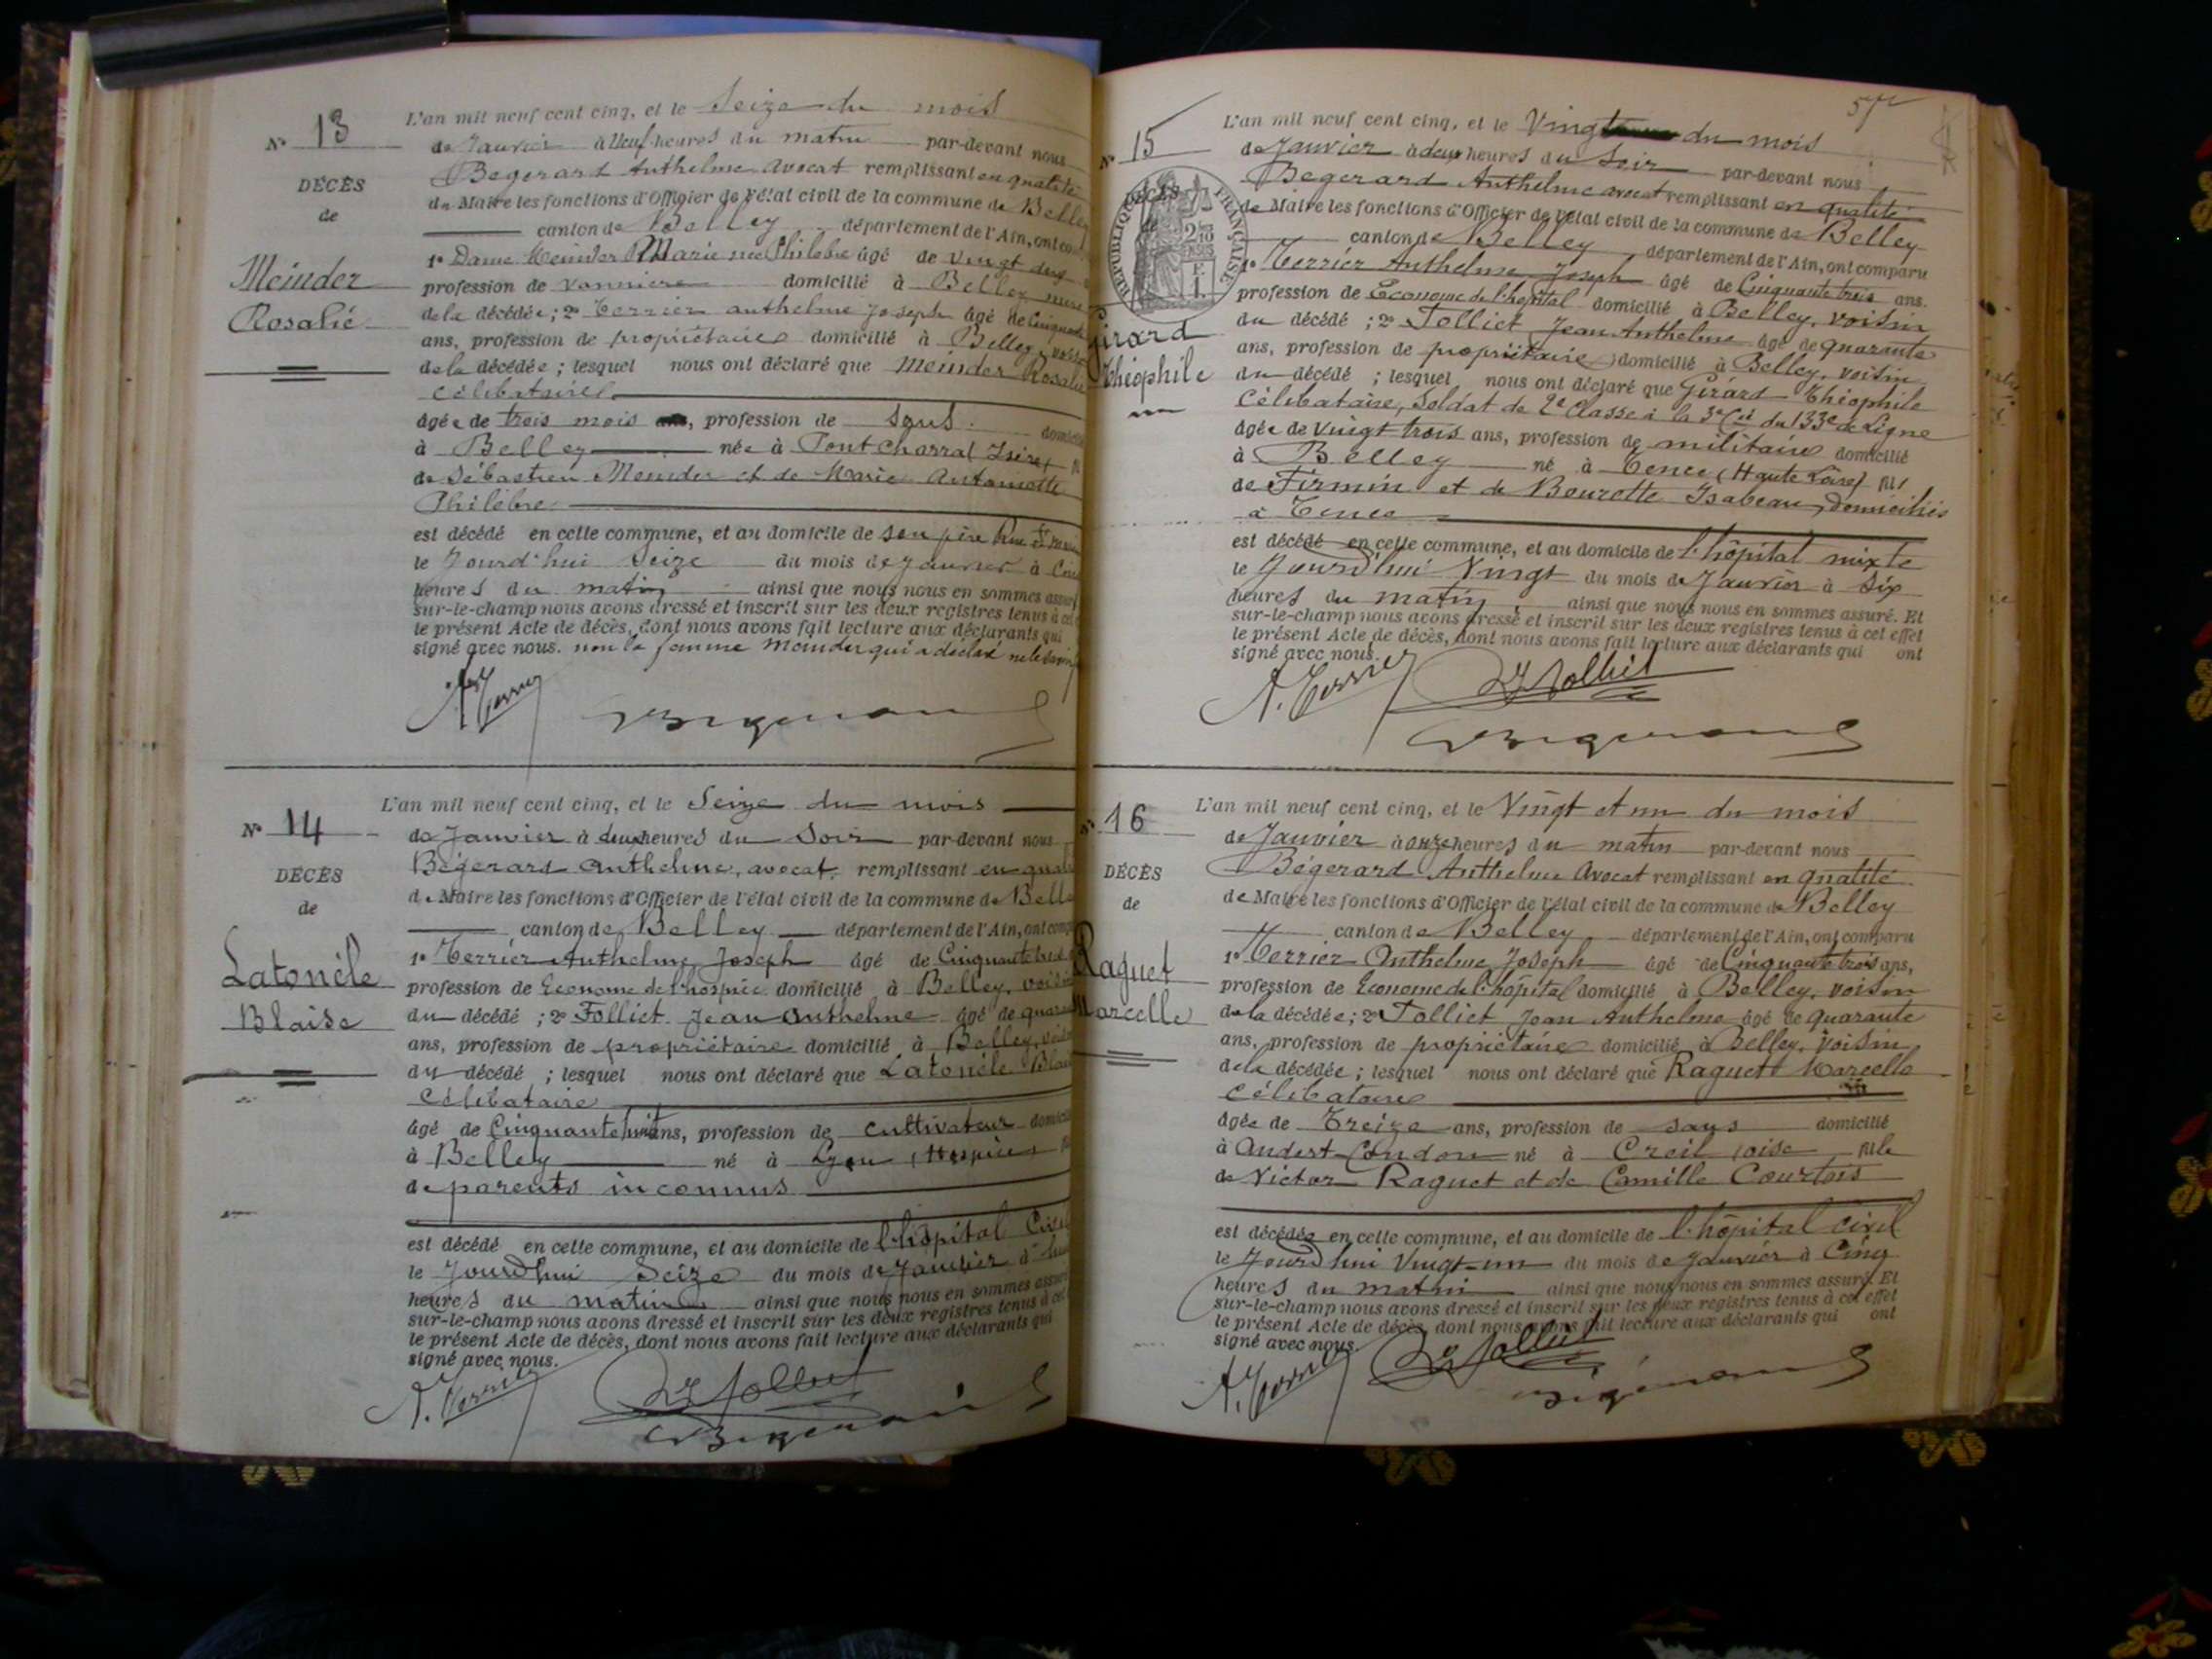 N° 13
DÉCÈS
de
Meinder
Rosalie
L'an mil neuf cent cinq, et le Seize du mois
de Janvier à Neuf heures du matin par-devant nous
Bégerard Anthelme avocat remplissant en qualité
de Maire les fonctions d'Officier de l'état civil de la commune de Belley
canton de Belley département de l'Ain, ont
1° Dame Meinder Marie née Philèbre âgé de vingt
profession de vannière domicilié à Belley, mère
de la décédée ; 2° Terrier anthelme Joseph âgé de Cinquante
ans, profession de propriétaire domicilié à Belley,
de la décédée ; lesquel nous ont déclaré que Meinder Rosalie
Célibataire
âgée de trois mois, profession de sans
à Belley née à Pontcharra (Isère)
de Sébastien Meinder et de Marie Antoinette
Philèbre
est décédé en cette commune, et au domicile de son père Rue
le Jourd'hui Seize du mois de Janvier à
heures du matin ainsi que nous nous en sommes
sur-le-champ nous avons dressé et inscrit sur les deux registres tenus à
le présent Acte de décès, dont nous avons fait lecture aux déclarants qui
signé avec nous. non la femme Meinder qui a déclaré ne le savoir
A. Terrier
Bégerard
N° 14
DÉCÈS
de
Latonèle
Blaise
L'an mil neuf cent cinq, et le Seize du mois
de Janvier à deux heures du Soir par-devant nous
Bégerard Anthelme, avocat, remplissant en
de Maire les fonctions d'Officier de l'état civil de la commune de
canton de Belley département de l'Ain, ont
1° Terrier Anthelme Joseph âgé de Cinquante
profession de Econome de l'hospice domicilié à Belley, voisin
du décédé ; 2° Folliet Jean Anthelme âgé de
ans, profession de propriétaire domicilié à Belley,
du décédé ; lesquel nous ont déclaré que Latonèle
Célibataire
âgé de Cinquante huit ans, profession de cultivateur
à Belley né à Lyon (Hospice)
de parents inconnus
est décédé en cette commune, et au domicile de l'hôpital
le Jourd'hui Seize du mois de Janvier à
heures du matin ainsi que nous nous en sommes
sur-le-champ nous avons dressé et inscrit sur les deux registres tenus à
le présent Acte de décès, dont nous avons fait lecture aux déclarants qui
signé avec nous.
A. Terrier
Folliet
Bégerard
57
N° 15
DÉCÈS
RÉPUBLIQUE FRANÇAISE
Girard
Théophile
L'an mil neuf cent cinq, et le Vingt du mois
de Janvier à deux heures du Soir par-devant nous
Bégerard Anthelme avocat remplissant en qualité
de Maire les fonctions d'Officier de l'état civil de la commune de Belley
canton de Belley département de l'Ain, ont comparu
1° Terrier Anthelme Joseph âgé de Cinquante trois ans.
profession de Econome de l'hôpital domicilié à Belley, voisin
du décédé ; 2° Folliet Jean Anthelme âgé de quarante
ans, profession de propriétaire domicilié à Belley, voisin
du décédé ; lesquel nous ont déclaré que Girard Théophile
Célibataire, Soldat de 2e Classe à la 3e Cie du 133e de Ligne
âgée de vingt trois ans, profession de militaire domicilié
à Belley né à Tence (Haute Loire) fils
de Firmin et de Bourette Isabeau, domiciliés
à Tence
est décédé en cette commune, et au domicile de l'hôpital mixte
le Jourd'hui Vingt du mois de Janvier à Six
heures du matin ainsi que nous nous en sommes assuré. Et
sur-le-champ nous avons dressé et inscrit sur les deux registres tenus à cet effet
le présent Acte de décès, dont nous avons fait lecture aux déclarants qui ont
signé avec nous.
A. Terrier
Folliet
Bégerard
N° 16
DÉCÈS
de
Raguet
Marcelle
L'an mil neuf cent cinq, et le Vingt et un du mois
de Janvier à onze heures du matin par-devant nous
Bégerard Anthelme Avocat remplissant en qualité
de Maire les fonctions d'Officier de l'état civil de la commune de Belley
canton de Belley département de l'Ain, ont comparu
1° Terrier Anthelme Joseph âgé de Cinquante trois ans,
profession de Econome de l'hôpital domicilié à Belley, voisin
de la décédée ; 2° Folliet Jean Anthelme âgé de quarante
ans, profession de propriétaire domicilié à Belley, voisin
de la décédée ; lesquel nous ont déclaré que Raguet Marcelle
Célibataire
âgée de Treize ans, profession de sans domicilié
à Andert-Condon né à Creil (oise fille
de Victor Raguet et de Camille Courtois
est décédée en cette commune, et au domicile de l'hôpital civil
le Jourd'hui Vingt-un du mois de Janvier à Cinq
heures du matin ainsi que nous nous en sommes assuré. Et
sur-le-champ nous avons dressé et inscrit sur les deux registres tenus à cet effet
le présent Acte de décès, dont nous avons fait lecture aux déclarants qui ont
signé avec nous.
A. Terrier
Folliet
Bégerard